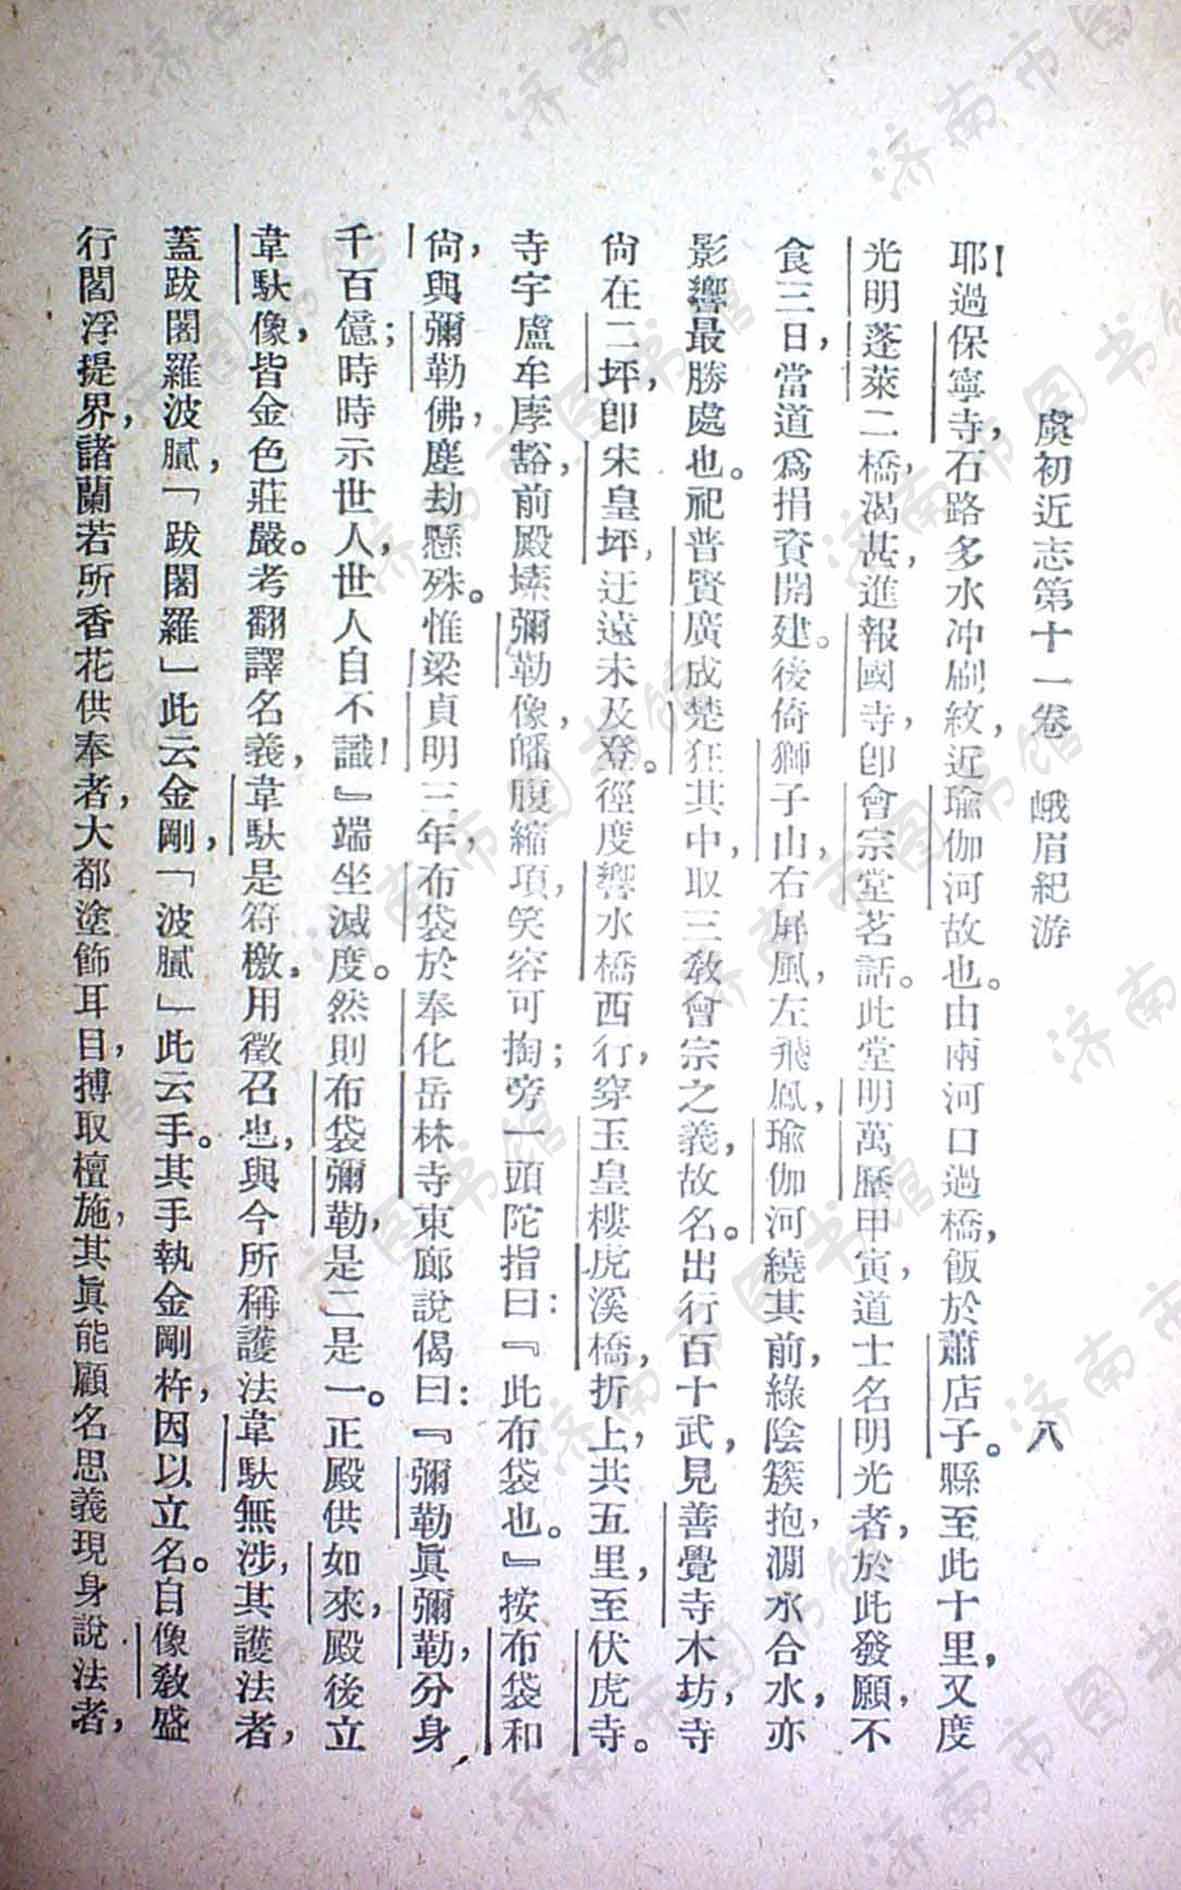 虞初近志第十一卷　峨眉紀游　八
耶！過保寧寺，石路多水冲刷紋，近瑜伽河故也。由兩河口過橋，飯於蕭店子。縣至此十里，又度
光明蓬萊二橋，渴甚，進報國寺，卽會宗堂茗話。此堂明萬歷甲寅，道士名明光者，於此發願，不
食三日，當道爲捐資開建。後倚獅子山，右屛風，左飛鳳，瑜伽河繞其前，綠陰簇抱，澗水合水，亦
影響最勝處也。祀普賢廣成楚狂其中，取三敎會宗之義，故名。出行百十武，見善覺寺木坊，寺
尙在二坪，卽宋皇坪，迂遠未及登。徑度響水橋西行，穿玉皇樓虎溪橋，折上，共五里，至伏虎寺。
寺宇盧牟庨豁，前殿塐彌勒像，皤腹縮項，笑容可掬；旁一頭陀指曰：『此布袋也。』按布袋和
尙，與彌勒佛，塵劫懸殊。惟梁貞明三年，布袋於奉化岳林寺東廊說偈曰：『彌勒眞彌勒，分身
千百億；時時示世人，世人自不識！』端坐滅度。然則布袋彌勒，是二是一。正殿供如來，殿後立
韋馱像，皆金色莊嚴。考翻譯名義，韋馱是符檄，用徵召也，與今所稱護法韋馱無涉，其護法者，
蓋跋闍羅波膩，「跋闍羅」此云金剛，「波膩」此云手。其手執金剛杵，因以立名。自像敎盛
行閻浮提界，諸蘭若所香花供奉者，大都塗飾耳目，搏取檀施，其眞能顧名思義現身說法者，
济南市图书馆